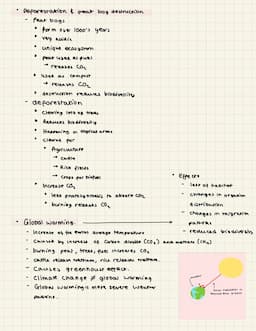 Deforestation & peat bog destruction
- Peat bogs
* form over 1000's years
* very acidic
* unique ecosystem
* peat used as fuel
→ releases CO₂
* used as compost
→ releases CO₂
* destruction reduces biodiversity
- deforestation
* clearing lots of trees
* Reduces biodiversity
* Happening in tropical areas
* cleared for
* Agriculture
→ cattle
→ Rice fields
→ crops for biofuel
* increase CO₂
* less photosynthesis to absorb CO₂
* burning releases CO₂
* Effects
- loss of habitat
- changes in organism distribution
- changes in migration patterns
- reduced biodiversity
Global warming
- increase of the Earths average temperature
- caused by increase of carbon dioxide (CO₂) and methane (CH₄)
- burning peat, trees, fuel increases CO₂
- cattle release methane, rice releases methane.
- causes greenhouse effect.
- Climate change ≠ global warming
- Global warming = more severe weather patterns.